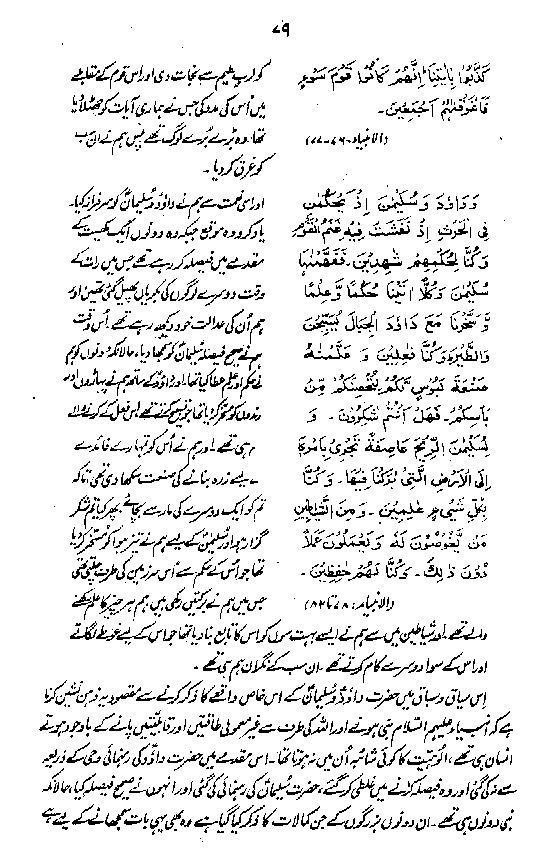 ۷۹
كَذَّبُوا بِاٰيٰتِنَا اِنَّهُمْ كَانُوْا قَوْمَ سَوْءٍ
فَاَغْرَقْنٰهُمْ اَجْمَعِيْنَ۔
(الانبیاء۔ ۷۶-۷۷)
کو کرب عظیم سے نجات دی اور اس قوم کے مقابلے
میں اُس کی مدد کی جس نے ہماری آیات کو جھٹلا دیا
تھا، وہ بڑے بُرے لوگ تھے پس ہم نے ان سب
کو غرق کر دیا۔
وَدَاوٗدَ وَسُلَيْمٰنَ اِذْ يَحْكُمٰنِ
فِي الْحَرْثِ اِذْ نَفَشَتْ فِيْهِ غَنَمُ الْقَوْمِ
وَكُنَّا لِحُكْمِهِمْ شٰهِدِيْنَ۔ فَفَهَّمْنٰهَا
سُلَيْمٰنَ وَكُلًّا اٰتَيْنَا حُكْمًا وَّعِلْمًا
وَّسَخَّرْنَا مَعَ دَاوٗدَ الْجِبَالَ يُسَبِّحْنَ
وَالطَّيْرَ وَكُنَّا فٰعِلِيْنَ۔ وَعَلَّمْنٰهُ
صَنْعَةَ لَبُوْسٍ لَّكُمْ لِتُحْصِنَكُمْ مِّنْ
بَاْسِكُمْ۔ فَهَلْ اَنْتُمْ شٰكِرُوْنَ۔ وَ
لِسُلَيْمٰنَ الرِّيْحَ عَاصِفَةً تَجْرِيْ بِاَمْرِهٖ
اِلَى الْاَرْضِ الَّتِيْ بٰرَكْنَا فِيْهَا۔ وَكُنَّا
بِكُلِّ شَيْءٍ عٰلِمِيْنَ۔ وَمِنَ الشَّيٰطِيْنِ
مَنْ يَّغُوْصُوْنَ لَهٗ وَيَعْمَلُوْنَ عَمَلًا
دُوْنَ ذٰلِكَ۔ وَكُنَّا لَهُمْ حٰفِظِيْنَ۔
(الانبیاء: ۷۸ تا ۸۲)
اور اسی نعمت سے ہم نے داؤد و سلیمان کو سرفراز کیا۔
یاد کرو وہ موقع جبکہ وہ دونوں ایک کھیت کے
مقدمے میں فیصلہ کر رہے تھے جس میں رات کے
وقت دوسرے لوگوں کی بکریاں پھیل گئی تھیں اور
ہم اُن کی عدالت خود دیکھ رہے تھے۔ اُس وقت
ہم نے صحیح فیصلہ سلیمان کو سمجھا دیا، حالانکہ دونوں کو ہم
نے حکم اور علم عطا کیا تھا۔ اور داؤد کے ساتھ ہم نے پہاڑوں اور
پرندوں کو مسخر کر دیا تھا جو تسبیح کرتے تھے، اس فعل کے کرنے والے
ہم ہی تھے۔ اور ہم نے اُس کو تمہارے فائدے
کے لیے زرہ بنانے کی صنعت سکھا دی تھی تاکہ
تم کو ایک دوسرے کی مار سے بچائے، پھر کیا تم شکر
گزار ہو؟ اور سلیمان کے لیے ہم نے تیز ہوا کو مسخر کر دیا
تھا جو اُس کے حکم سے اُس سرزمین کی طرف چلتی تھی
جس میں ہم نے برکتیں رکھی ہیں، ہم ہر چیز کا علم رکھنے
والے تھے۔ اور شیاطین میں سے ہم نے ایسے بہت سوں کو اس کا تابع بنا دیا تھا جو اس کے لیے غوطے لگاتے
اور اس کے سوا دوسرے کام کرتے تھے۔ ان سب کے نگران ہم ہی تھے۔
اِس سیاق و سباق میں حضرت داؤد و سلیمان کے اس خاص واقعے کا ذکر کرنے سے مقصود یہ ذہن نشین کرنا
ہے کہ انبیاء علیہم السلام نبی ہونے اور اللہ کی طرف سے غیر معمولی طاقتیں اور قابلیتیں پانے کے باوجود ہوتے
انسان ہی تھے، الوہیت کا کوئی شائبہ اُن میں نہ ہوتا تھا۔ اس مقدمے میں حضرت داؤد کی رہنمائی وحی کے ذریعہ
سے نہ کی گئی اور وہ فیصلہ کرنے میں غلطی کر گئے، حضرت سلیمان کی رہنمائی کی گئی اور انہوں نے صحیح فیصلہ کیا، حالانکہ
نبی دونوں ہی تھے۔ ان دونوں بزرگوں کے جن کمالات کا ذکر کیا گیا ہے وہ بھی یہی بات سمجھانے کے لیے ہے